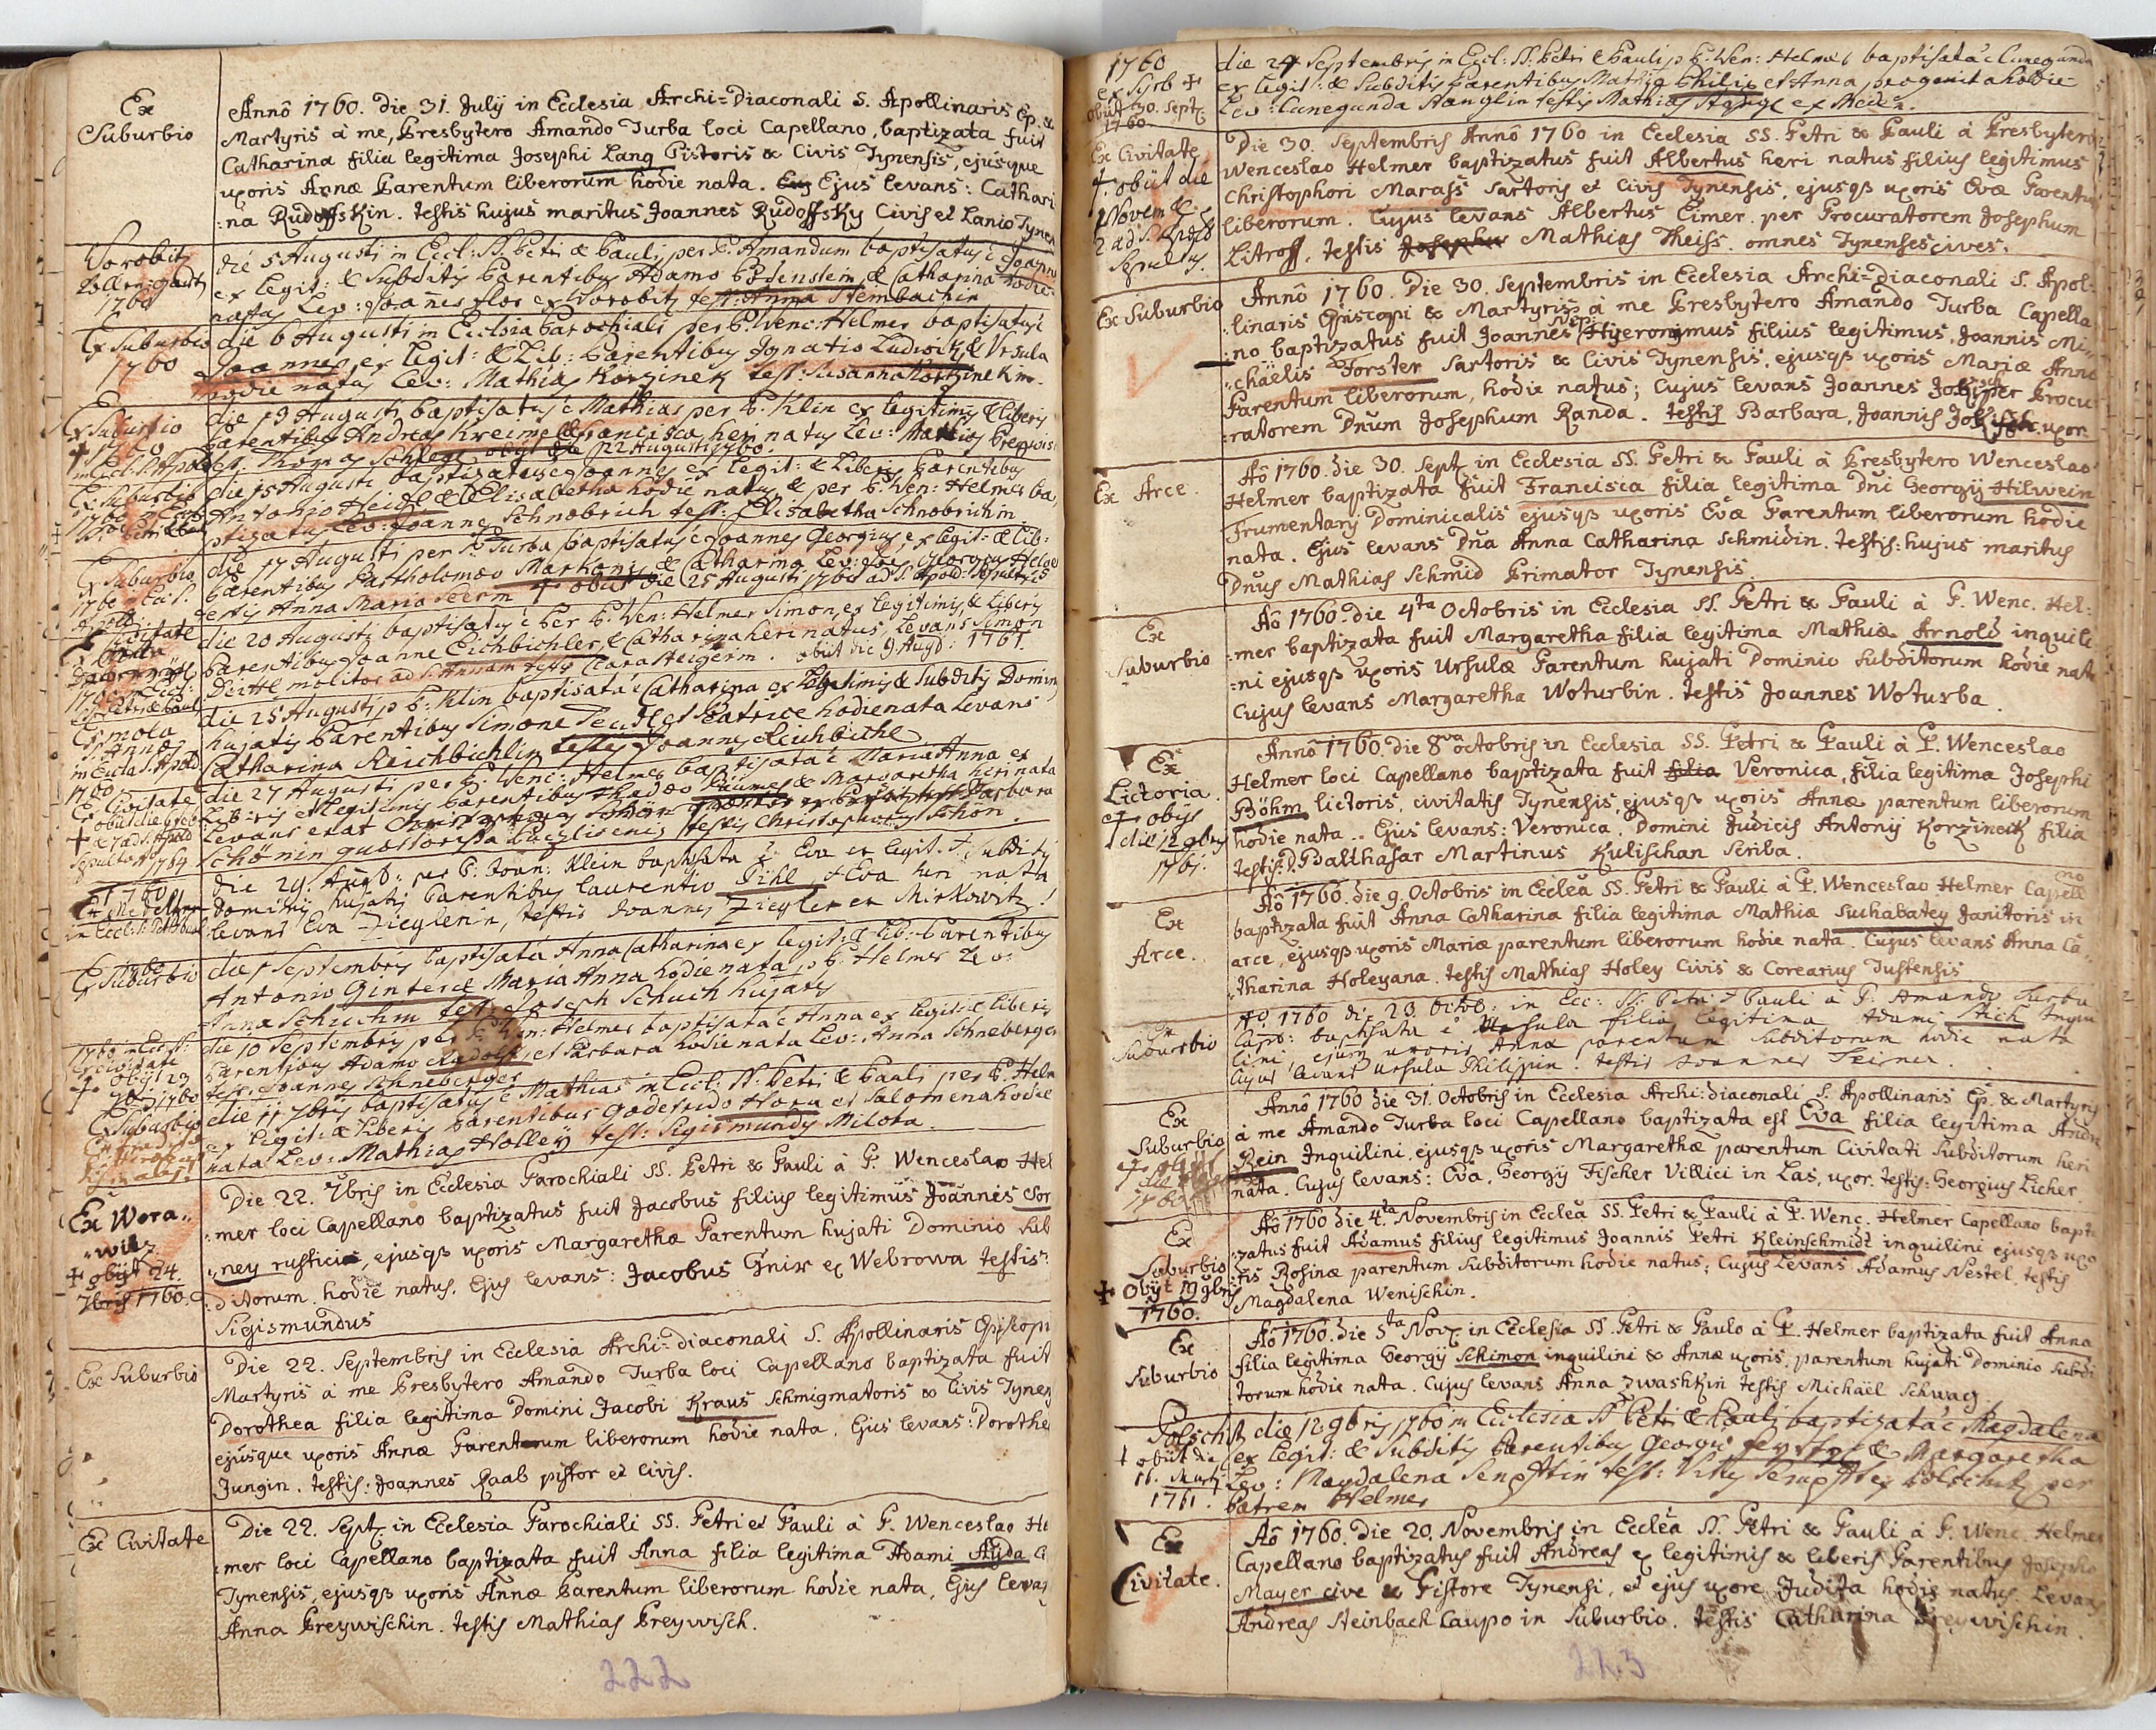 Ex
Suburbio
Annô 1760. Die 31. Julij in Ecclesia Archi=Diaconali S. Apollinaris Ep. &
Martyris à me, Presbytero Amando Turba loci Capellano, baptizata fuit
Catharina filia legitima Josephi Lang Pistoris & Civis Tynensis, ejusque
uxoris Annæ Parentum liberorum hodie nata. Ejus levans: Cathari
:na Rudoffskin. testis hujus maritus Joannes Rudoffsky Civis et Lanio Tynen
Worobitz
1760
die 5 Augusti in Eccl: SS. Petri & Pauli, per P. Amandum baptisatus ē Joannes
ex legit: & Subditis Parentibus Adamo Bodenstein & Catharina hodie
natus Lev: Joannes flor ex Worobitz test: Anna Stembachin
Ex Suburbio
1760
die 6 Augusti in Ecclesia Parochiali per P. Wenc: Helmer baptisatus ē
Joannes ex legit: & Lib: Parentibus Ignatio Ludwik & Ursula
hodie natus Lev: Mathias Korzinek test: Susanna Korzinekin
Ex Suburbio
1760
die 13 Augusti baptisatus ē Mathias per P. Klin ex legitimis & liberis
Parentibus Andrea Kreime & Francisca heri natus Lev: Mathias
test. Thomas Schlegl obyt die 22 Augusti 1760.
Ex Suburbio
1760
die 15 Augusti baptisatus ē Joannes ex legit: & Liberis Parentibus
Antonio Heidl & Elisabetha hodie natus & per P. Wen: Helmer ba,
ptizatus Lev: Joanne Schnobrich test: Elisabetha Schnobrichin
Ex Suburbio
1760
die 17 Augusti per P. Turba baptisatus ē Joannes Georgius, ex legit: & Lib:
Parentibus Bartholomæo Markoni & Catharina Lev: Georgius
testis Anna Maria ✝ obiit die 25 Augusti 1760 ad S. Apol: sepultus
die 20 Augusti baptisatus ē per P. Wen: Helmer Simon, ex legitimis & Liberis
Parentibus Joanne Eichbichler & Catharina heri natus, Levans Simon
molitor ad S. Annam testis Clara Steigerin. obiit die 9 Augus: 1761.
Ex mola
S. Annæ
1760
die 25 Augusti p P. Klin baptisata ē Catharina ex legitimis & Subditis Dominio
hujatis Parentibus Simone et Beatrice hodie nata Levans
Catharina Reichbichlin testis Joannes Reichbichl
Ex Civitate
die 27 Augusti per P. Wenc: Helmer baptisata ē Maria Anna ex
Liberis et legitimis Parentibus & Margaretha heri nata
Levans erat Barbara
Schönin testis Christophorus Schön.
1760
die 29. Augus: per P. Joan: Klein baptisata ē Eva ex legit: & Subditis
Dominij hujatis parentibus Laurentio Pihl & Eva heri nata
levans Eva Zieglerin, testis Joannes Ziegler ex Mirkowitz!
1760
Ex Suburbio
die 1 Septembris baptisata Anna Catharina ex legit: & lib: Parentibus
Antonio Ginter & Maria Anna hodie nata p P. Helmer Lev:
Anna Schuchin test: Joseph Schuch hujas
1760
Ex Civitate
die 10 Septembris per P. Wen: Helmer baptisata ē Anna ex legit: & liberis
Parentibus Adamo Rudolf et Barbara hodie nata Lev: Anna Schneberger
test: Joannes Schneberger
Ex Suburbio
die 11 7bris baptisatus ē Mathias in Eccl: SS. Petri & Pauli per P. Helm
ex legit: & Liberis parentibus Godefrido Hora et Salomena hodie
nata Lev: Mathias Holleÿ test: Sigismundus Milota.
Ex Wora,,
,,witz
✝ obijt 24.
7bris 1760.
Die 22. 7bris in Ecclesia Parochiali SS. Petri & Pauli à P. Wenceslao Hel
:mer loci Capellano baptizatus fuit Jacobus filius legitimus Joannis Cor
,,ney rustici, ejusqß uxoris Margarethæ Parentum hujati Dominio sub
:ditorum. hodie natus. Ejus levans: Jacobus Gnix ex Webrowa testis:
Sigismundus
Ex Suburbio
Die 22. Septembris in Ecclesia Archi=diaconali S. Apollinaris Episcopi
Martyris à me Presbytero Amando Turba loci Capellano baptizata fuit
Dorothea filia legitima Domini Jacobi Kraus Schmigmatoris & Civis Tynen
ejusque uxoris Annæ Parentum liberorum hodie nata. Ejus levans: Dorothe
Jungin. testis: Joannes Raab pistor et civis.
Ex Civitate
Die 22. Sept. in Ecclesia Parochiali SS. Petri et Pauli à P. Wenceslao He
:mer loci Capellano baptizata fuit Anna filia legitima Adami Auda Ci
Tynensis, ejusqß uxoris Annæ Parentum liberorum hodie nata, Ejus levans
Anna Preywischin. testis Mathias Preywisch.
222
1760
ex Syrb ✝
obijt 30. Sept.
1760.
die 24 Septembris in Eccl: SS. Petri & Pauli p P. Wen: Helmer baptisata ē Cunegunda
ex legit: & Subditis Parentibus Mathia Philip et Anna, progenita hodie
Lev: Cunegunda Stanglin testis Mathias Stangl ex
Ex Civitate
✝ obiit die
1 Novemb &
2 ad S. Apoll
Sepultus.
Die 30. Septembris Annô 1760 in Ecclesia SS. Petri & Pauli à Presbytero
Wenceslao Helmer baptizatus fuit Albertus heri natus filius legitimus
Christophori Marass Sartoris et Civis Tynensis, ejusqß uxoris Evæ Parentu
liberorum. Cujus levans Albertus Eimer per Procuratorem Josephum
Litroff, testis Josephus Mathias Theiss. omnes Tynenses cives.
Ex Suburbio
Annô 1760. Die 30. Septembris in Ecclesia Archi=Diaconali S. Apol:
:linaris Episcopi & Martyris à me Presbytero Amando Turba Capella
:no baptizatus fuit Joannes Hyeronymus filius legitimus, Joannis Mi,,
,,chäelis Forster Sartoris & Civis Tynensis, ejusqß uxoris Mariæ Annæ
Parentum liberorum, hodie natus; Cujus levans Joannes per Procu
:ratorem Dnum Josephum Randa. testis Barbara, Joannis uxor.
Ex Arce.
Aô 1760. die 30. Sept. in Ecclesia SS. Petri & Pauli à Presbytero Wenceslao
Helmer baptizata fuit Francisca filia legitima Dni Georgij Hilwein
Frumentarij Dominicalis ejusqß uxoris Evæ Parentum liberorum hodie
nata. Ejus levans Dna Anna Catharina Schmidin. testis: hujus maritus
Dnus Mathias Schmid Primator Tynensis
Ex
Suburbio
Aô 1760. die 4ta Octobris in Ecclesia SS. Petri & Pauli à P. Wenc. Hel:
:mer baptizata fuit Margaretha filia legitima Mathiæ Arnold inquili
:ni ejusqß uxoris Ursulæ Parentum hujati Dominio Subditorum hodie nata
Cujus levans Margaretha Woturbin. testis Joannes Woturba.
Ex
Lictoria.
✝ obijt
die 12 9bris
1761.
Annô 1760. die 8va Octobris in Ecclesia SS. Petri & Pauli à P. Wenceslao
Helmer loci Capellano baptizata fuit filia Veronica, filia legitima Josephi
Böhm lictoris, civitatis Tynensis, ejusqß uxoris Annæ parentum liberorum
hodie nata.. Ejus levans: Veronica, Domini Judicis Antonij Korzinek filia
testis: D. Balthasar Martinus Kulischan Scriba.
Ex
Arce.
Aô 1760. die 9. Octobris in Ecclea SS. Petri & Pauli à P. Wenceslao Helmer Capellno
baptizata fuit Anna Catharina filia legitima Mathiæ Suchabatey Janitoris in
arce, ejusqß uxoris Mariæ parentum liberorum hodie nata. Cujus levans Anna Ca,,
,,tharina Holeyana. testis Mathias Holey Civis & Corearius Tustensis
Ex
Suburbio
Aô. 1760 die 23. Octob: in Ecc: SS. Petri & Pauli à P. Amando Turba
Cap: baptisata ē Ursula filia legitima Adami Stich Inqui
lini, ejusq uxoris Anna parentum subditorum hodie nata
Cujus levans Ursula Philippin. testis Joannes Teiner
Ex
Suburbio
Annô 1760 die 31. Octobris in Ecclesia Archi:diaconali S. Apollinaris Ep. & Martyris
à me Amando Turba loci Capellano baptizata est Eva filia legitima Andre
Rein Inquilini, ejusqß uxoris Margarethæ parentum Civitati Subditorum heri
nata. Cujus levans: Eva, Georgij Fischer Villici in Las, uxor. testis: Georgius Licher
Ex
Suburbio
✝ Obijt 19 9bris
1760.
Aô 1760 die 4ta. Novembris in Ecclea SS. Petri & Pauli à P. Wenc. Helmer Capellano bapti
:zatus fuit Adamus filius legitimus Joannis Petri Kleinschmidt inquilini ejusqß uxo
:ris Rosinæ parentum Subditorum hodie natus; Cujus Levans Adamus Nestel, testis
Magdalena Wenischin.
Ex
Suburbio
Aô 1760. die 5ta Nov. in Ecclesia SS. Petri & Paulo à P. Helmer baptizata fuit Anna
filia legitima Georgij Schimon inquilini & Annæ uxoris, parentum hujati Dominio Subdi
torum hodie nata. Cujus levans Anna Zwashkin testis Michaël Schwag
✝ obiit die
11. Martij
1761.
die 12 9bris 1760 in Ecclesia SS Petri & Pauli baptizata ē Magdalena
ex legit: & Subditis Parentibus Georgio & Margaretha
Lev: Magdalena test: Vitus per
Patrem Helmer
Ex
Civitate.
Aô 1760. Die 20. Novembris in Ecclea SS. Petri & Pauli à P. Wenc. Helmer
Capellano baptizatus fuit Andreas ex legitimis & liberis Parentibus Josepho
Mayer cive & Pistore Tynensi, et ejus uxore Judita hodie natus. Levans
Andreas Steinbach Caupo in Suburbio. testis Catharina Preywischin.
223